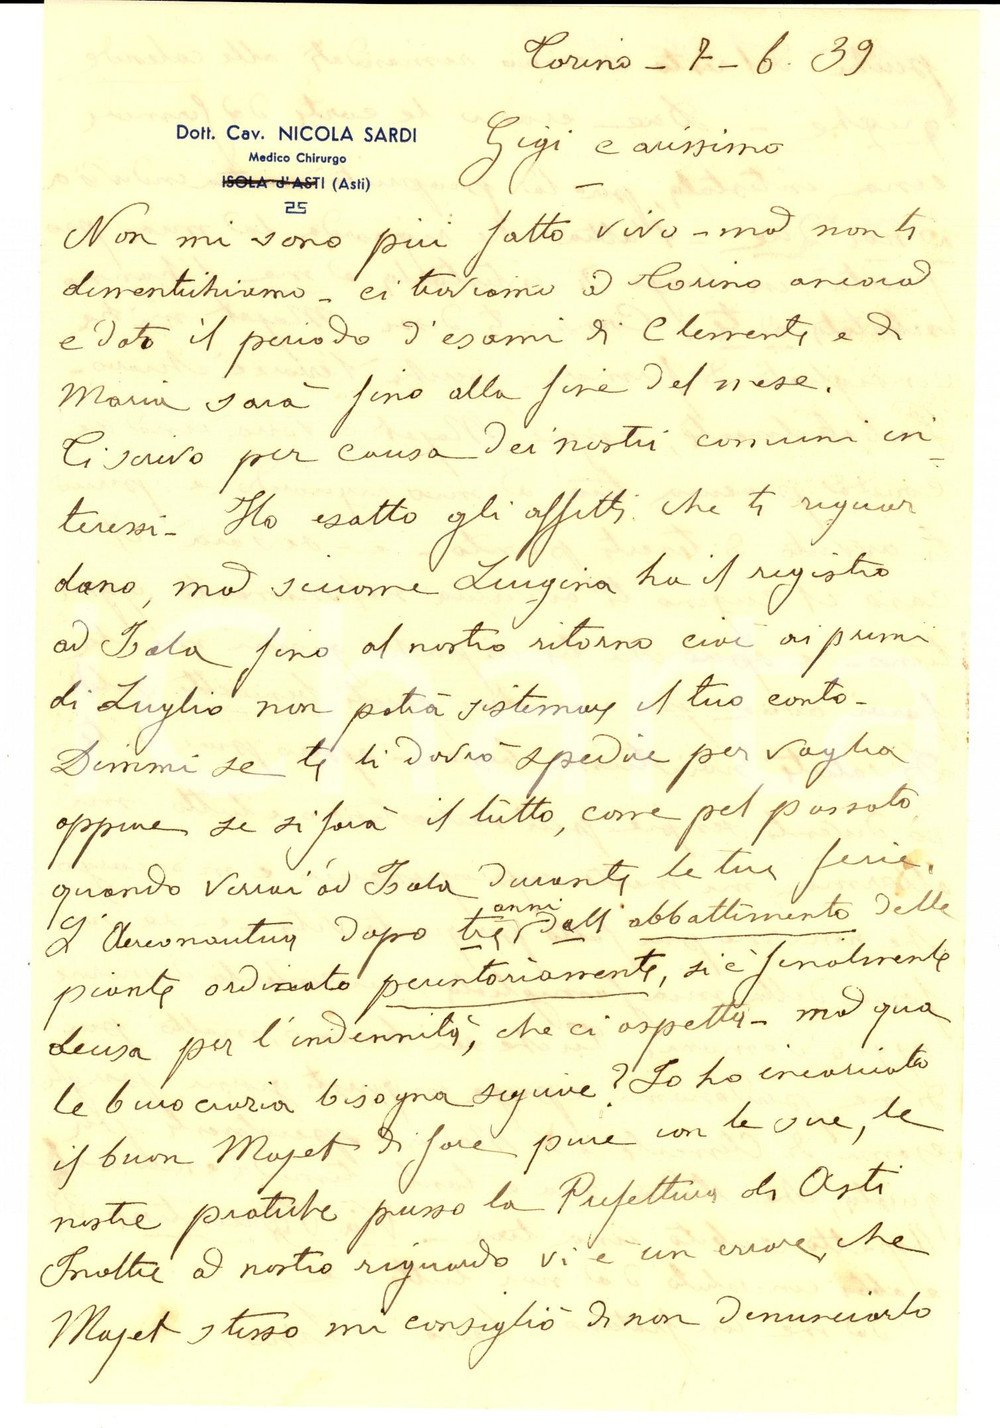 Torino - 7 - 6. 39
Dott. Cav. NICOLA SARDI
Medico Chirurgo
ISOLA d'ASTI (Asti)
25
Gigi carissimo
Non mi sono più fatto vivo - ma non ti
dimentichiamo - ci troviamo a Torino ancora
e dato il periodo d'esami di Clemente e di
Maria sarà fino alla fine del mese.
Ti scrivo per causa dei nostri comuni in-
teressi - Ho esatto gli affitti che ti riguar
dano, ma siccome Luigina ha il registro
ad Isola fino al nostro ritorno cioè ai primi
di Luglio non potrà sistemare il tuo conto -
Dimmi se te li dovrò spedire per vaglia
oppure se si farà il tutto, come pel passato
quando verrai ad Isola durante le tue ferie.
L'Aereonautica dopo tre anni dall'abbattimento delle
piante ordinato perentoriamente, si è finalmente
decisa per l'indennità, che ci aspetta - ma qua
le burocrazia bisogna seguire? Io ho incaricato
il buon Majet di fare pure con le sue, le
nostre pratiche presso la Prefettura di Asti
Inoltre a nostro riguardo vi è un errore, che
Majet stesso mi consigliò di non denunciarlo